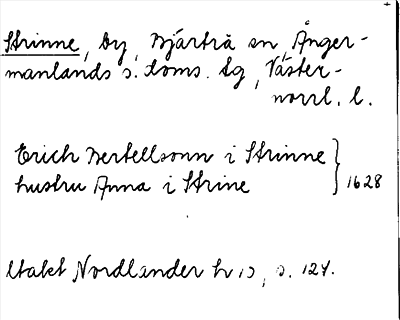 Strinne, by, Bjärtrå sn, Ånger-
manlands s. doms. lg, Väster-
norrl. l.
Erich Bertellsonn i Strinne
hustru Anna i Strine } 1628
Utakt Nordlander h 15, s. 124.